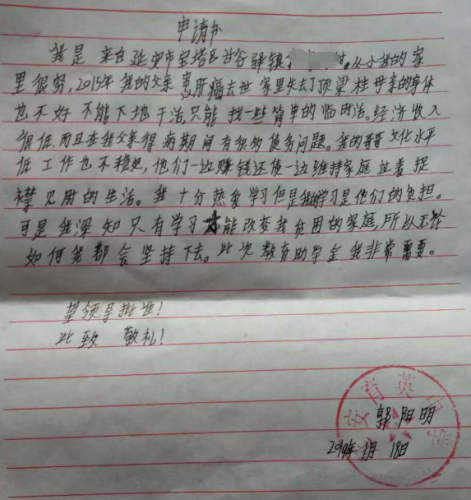 申请书
我是 来自延安市宝塔区甘谷驿镇 村。从小我的家
里很穷,2015年我的父亲患肝癌去世 家里失去了顶梁柱 母亲的身体
也不好 不能下地干活,只能 找一些简单的临时活。经济收入
很低,而且在我父亲得病期间有很多债务问题。我的哥哥文化水平
低 工作也不稳定,他们一边赚钱还债一边维持家庭 过着 捉
襟见肘的生活。我十分热爱学习但是我的学习是他们的负担。
可是我深知只有学习才能改变我贫困的家庭,所以无论
如何我都会坚持下去。此次教育助学金我非常需要。
望领导批准!
此致 敬礼!
郭阳明
2019年1月18日